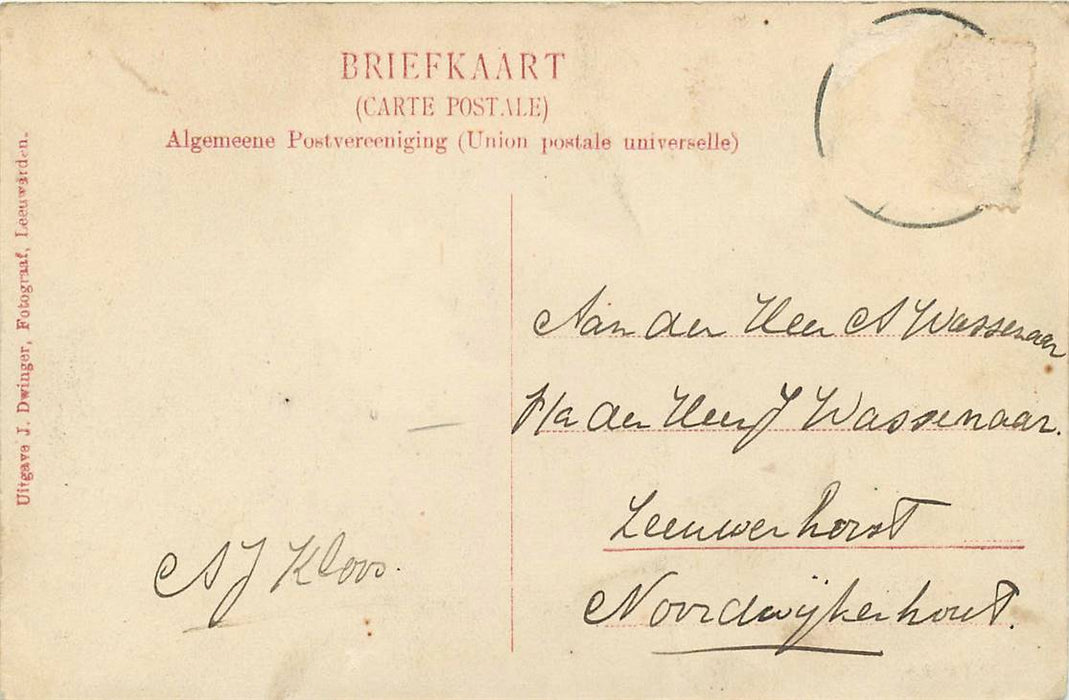 BRIEFKAART
(CARTE POSTALE)
Algemeene Postvereeniging (Union postale universelle)
Uitgave J. Dwinger, Fotograaf, Leeuwarden.
Aan den Heer A Wassenaar
P/a den Heer J Wassenaar.
Leeuwenhorst
Noordwijkerhout.
A J Kloos.